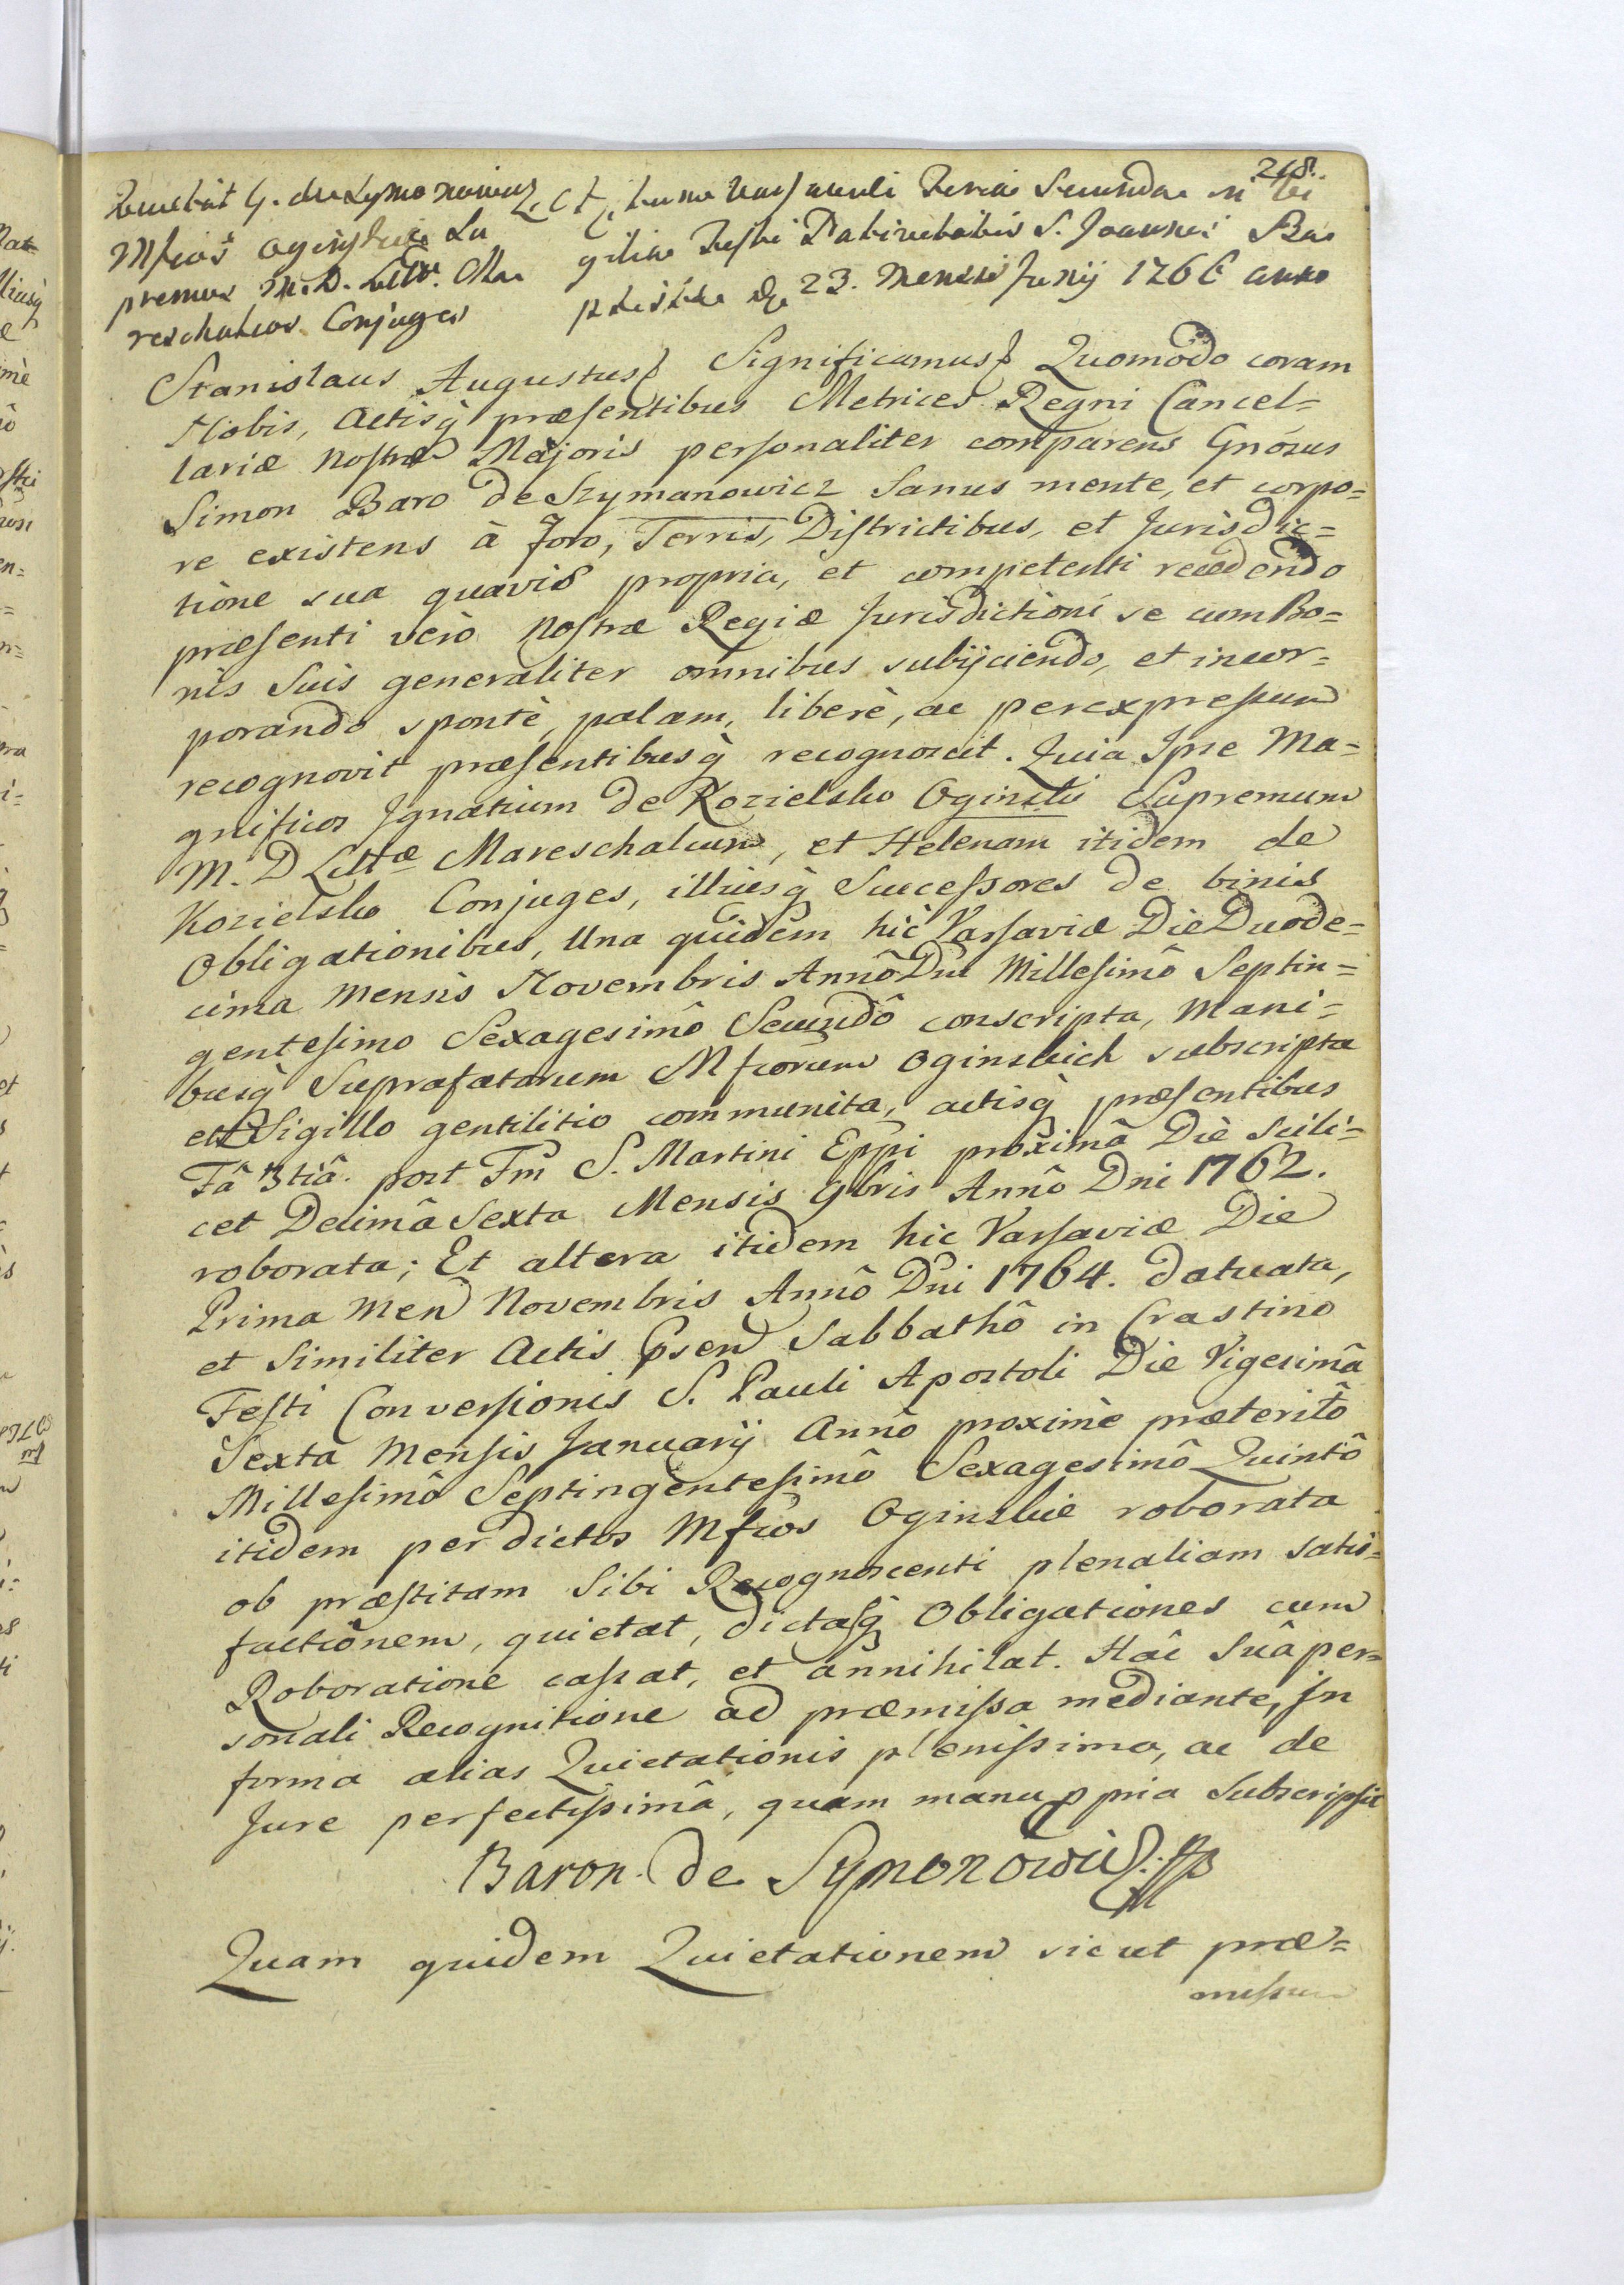 218.
Quietat G. de Symonowicz
Mfcos Oginskie Su
premus M. D. Litt. Ma
reschalcos Conjuges
Actum Varsaviæ Feria Secunda in Vi
gilia Festi Nativitatis S. Joannis Ba
ptistæ Die 23. Mensis Junij 1766 anno
Stanislaus Augustus Significamus Quomodo coram
Nobis, Actisq́ præsentibus Metrices Regni Cancel=
lariæ Nostræ Majoris personaliter comparens Gnósus
Simon Baro de Szymanowicz Sanus mente, et corpo=
re existens à Foro, Terris, Districtibus, et Jurisdic=
tione sua quavis propria, et competenti recedendo
præsenti verò Nostræ Regiæ Jurisdictioni se cum Bo=
nis Suis generaliter omnibus subijciendo, et incor=
porando spontè, palam, liberè, ac per expressum
recognovit præsentibusq́ recognoscit. Quia Ipse Ma=
gnificos Ignatium de Kozielsko Oginski Supremum
M. D. Littæ Mareschalcum, et Helenam itidem de
Kozielsko Conjuges, illiusq́ Successores de binis
Obligationibus, Una quidem hic Varsaviæ Die Duode=
cima Mensis Novembris Annô Dni Millesimô Septin=
gentesimo Sexagesimô Secundô conscripta, Mani=
busq́ Suprafatorum Mfcorum Oginskich subscripta
et Sigillo gentilitio communita, actisq́ præsentibus
Fâ 3tiâ post Fm S. Martini Eppi proximâ Diè scili=
cet Decimâ Sexta Mensis 9bris Annô Dni 1762.
roborata; Et altera itidem hic Varsaviæ Die
Prima Men Novembris Annô Dni 1764. datuata,
et Similiter Actis Psen Sabbathô in Crastino
Festi Conversionis S. Pauli Apostoli Die Vigesimâ
Sexta Mensis Januarij Annô proximè præteritô
Millesimô Septingentesimô Sexagesimô Quintô
itidem per dictos Mfcos Oginskie roborata
ob præstitam Sibi Recognoscenti plenaliam satis=
factionem, quietat, dictasq́ Obligationes cum
Roboratione cassat, et annihilat. Hâc Suâ per=
sonali Recognitione ad præmissa mediante, In
forma alias Quietationis plenissima, ac de
Jure perfectissimâ, quam manu ppria Subscripsit
Baron de Symonowicz
Quam quidem Quietationem sicut præ=
missum